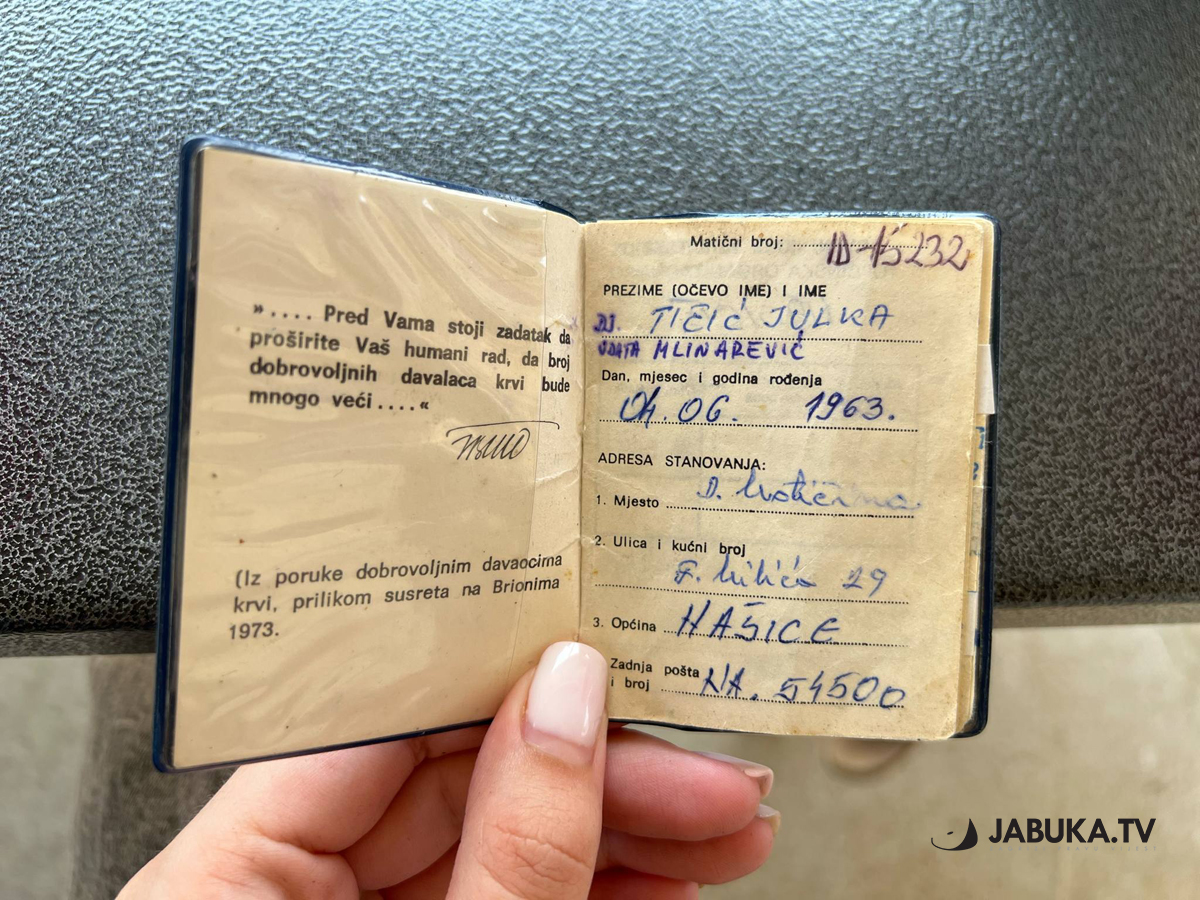 ».... Pred Vama stoji zadatak da
proširite Vaš humani rad, da broj
dobrovoljnih davalaca krvi bude
mnogo veći....«
(Iz poruke dobrovoljnim davaocima
krvi, prilikom susreta na Brionima
1973.
Matični broj: 15232
PREZIME (OČEVO IME) I IME
JULKA
UDATA MLINAREVIĆ
Dan, mjesec i godina rođenja
04. 06. 1963.
ADRESA STANOVANJA:
1. Mjesto D. Motičina
2. Ulica i kućni broj
29
3. Općina NAŠICE
Zadnja pošta
i broj NA. 54500
JABUKA.TV